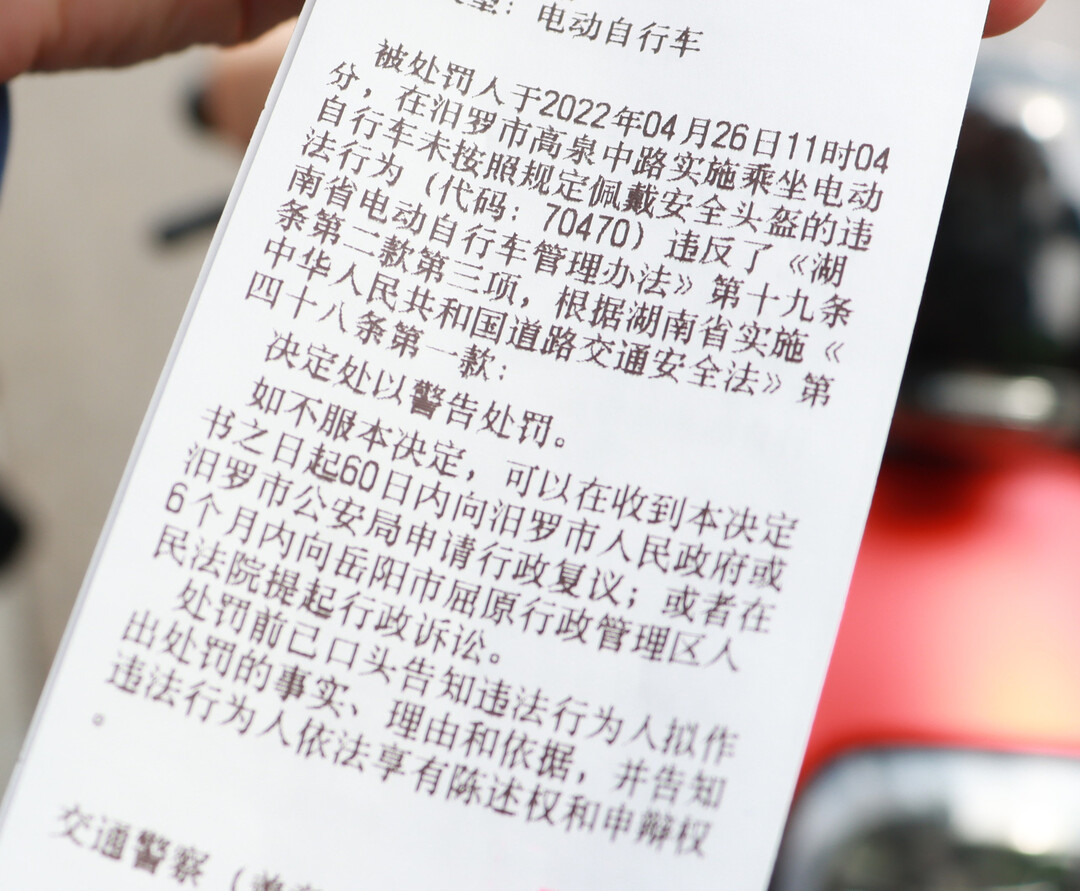 型：电动自行车
被处罚人于2022年04月26日11时04
分，在汨罗市高泉中路实施乘坐电动
自行车未按照规定佩戴安全头盔的违
法行为（代码：70470）违反了《湖
南省电动自行车管理办法》第十九条
条第二款第三项，根据湖南省实施《
中华人民共和国道路交通安全法》第
四十八条第一款：
决定处以警告处罚。
如不服本决定，可以在收到本决定
书之日起60日内向汨罗市人民政府或
汨罗市公安局申请行政复议；或者在
6个月内向岳阳市屈原行政管理区人
民法院提起行政诉讼。
处罚前已口头告知违法行为人拟作
出处罚的事实、理由和依据，并告知
违法行为人依法享有陈述权和申辩权
。
交通警察（